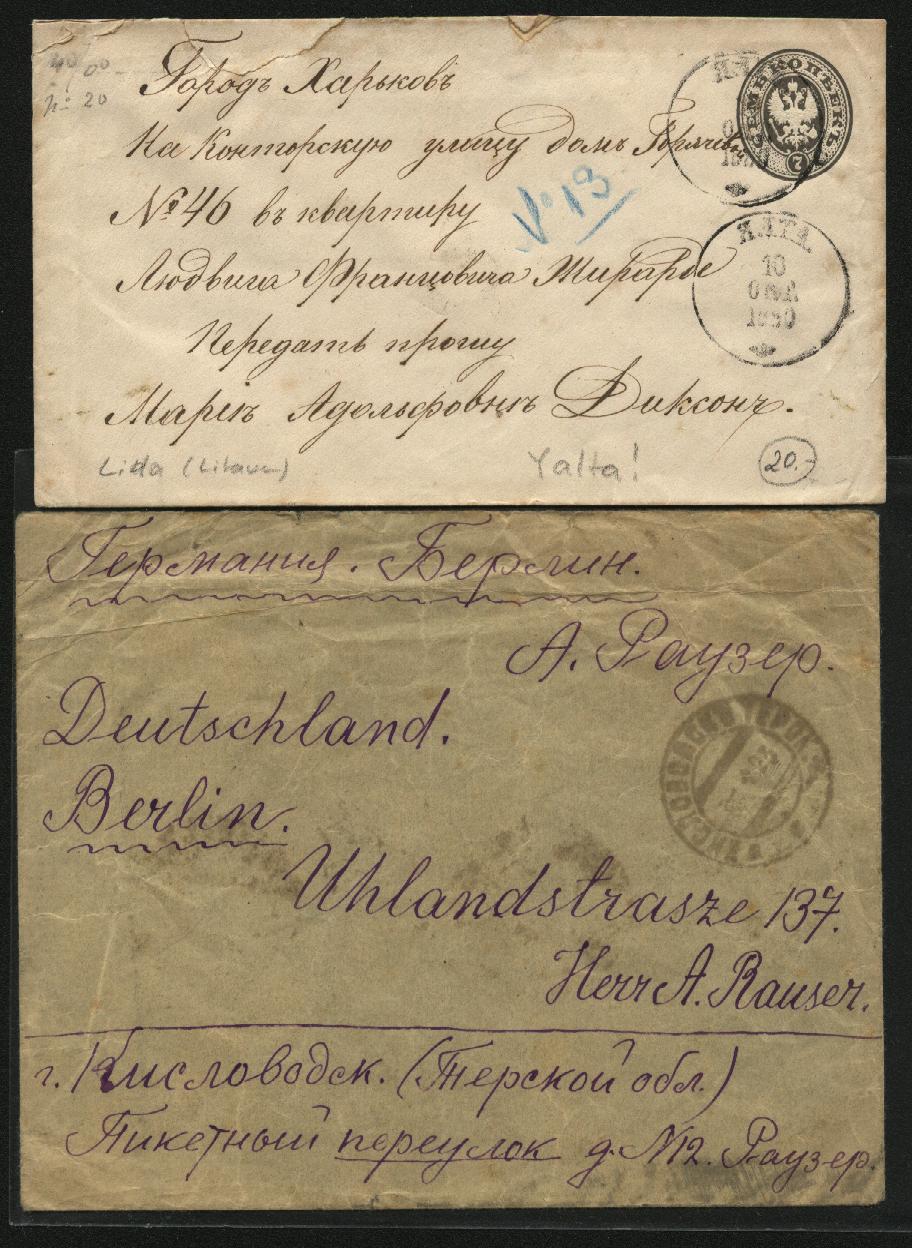 40/00-
№ 20
Городъ Харьковъ
На Конторскую улицу домъ
№ 46 въ квартиру
Людвига Францовича Жирардъ
Передать прошу
Маріѣ Адольфовнѣ Диксонъ.
№ 13
СЕМЬ КОПѢЕКЪ
7
ЯЛТА.
10
ОКТ.
1880
Lida (Litauen)
Yalta!
20.-
Германия. Берлин.
А. Раузер.
Deutschland.
Berlin.
Uhlandstrasze 137.
Herr A. Rauser.
КИСЛОВОДСК ТЕРСК.
г. Кисловодск. (Терской обл.)
Пикетный переулок д. N12. Раузер.